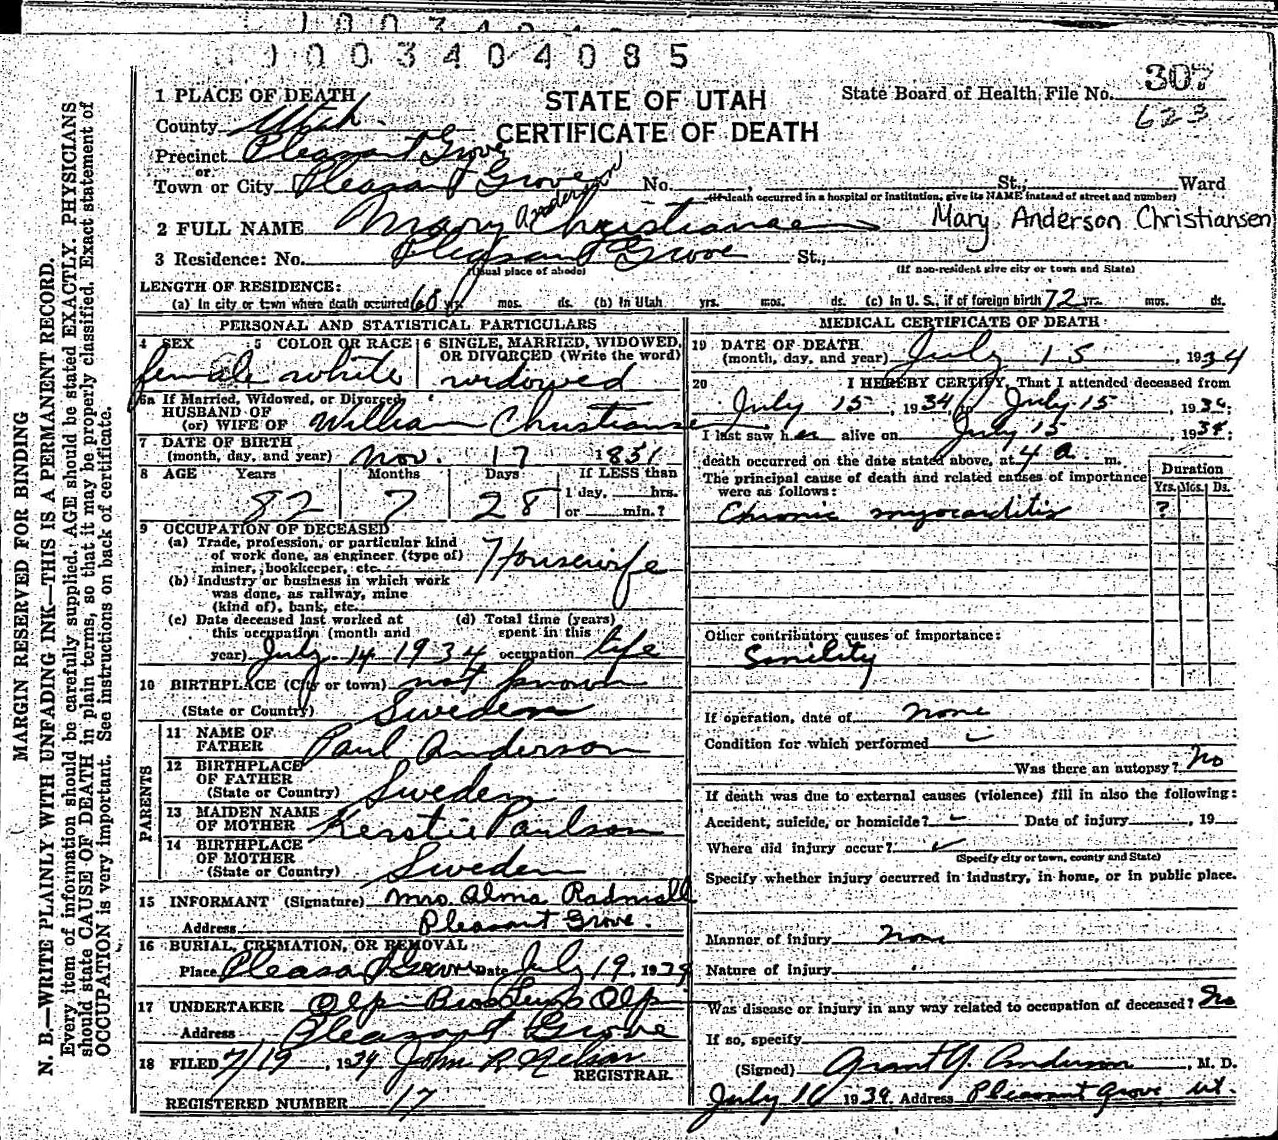 1 0 0 3 4 0 4 0 8 5
307
623
1 PLACE OF DEATH
STATE OF UTAH
CERTIFICATE OF DEATH
State Board of Health File No.
County Utah
Precinct Pleasant Grove
or
Town or City Pleasant Grove No. , St.; Ward
(If death occurred in a hospital or institution, give its NAME instead of street and number)
2 FULL NAME Mary Anderson Christiansen Mary Anderson Christiansen
3 Residence: No. Pleasant Grove St.,
(Usual place of abode) (If non-resident give city or town and State)
LENGTH OF RESIDENCE:
(a) In city or town where death occurred 68 yrs. mos. ds. (b) In Utah yrs. mos. ds. (c) In U. S., if of foreign birth 72 yrs. mos. ds.
PERSONAL AND STATISTICAL PARTICULARS
4 SEX 5 COLOR OR RACE 6 SINGLE, MARRIED, WIDOWED, OR DIVORCED (Write the word)
female white widowed
6a If Married, Widowed, or Divorced
HUSBAND OF
(or) WIFE OF William Christiansen
7 DATE OF BIRTH
(month, day, and year) Nov. 17 1851
8 AGE Years Months Days If LESS than
82 7 28 1 day, hrs.
or min.?
9 OCCUPATION OF DECEASED
(a) Trade, profession, or particular kind
of work done, as engineer (type of)
miner, bookkeeper, etc. Housewife
(b) Industry or business in which work
was done, as railway, mine
(kind of), bank, etc.
(c) Date deceased last worked at
this occupation (month and
year) July 14 1934
(d) Total time (years)
spent in this
occupation life
10 BIRTHPLACE (City or town) not known
(State or Country) Sweden
PARENTS
11 NAME OF
FATHER Paul Anderson
12 BIRTHPLACE
OF FATHER
(State or Country) Sweden
13 MAIDEN NAME
OF MOTHER Kerstie Paulson
14 BIRTHPLACE
OF MOTHER
(State or Country) Sweden
15 INFORMANT (Signature) Mrs Alma Radmall
Address Pleasant Grove.
16 BURIAL, CREMATION, OR REMOVAL
Place Pleasant Grove Date July 19, 1934
17 UNDERTAKER Olp
Address Pleasant Grove
18 FILED 7/19, 1934 John R. Nelson
REGISTRAR.
REGISTERED NUMBER 17
MEDICAL CERTIFICATE OF DEATH
19 DATE OF DEATH
(month, day, and year) July 15, 1934
20 I HEREBY CERTIFY, That I attended deceased from
July 15, 1934, to July 15, 1934;
I last saw her alive on July 15, 1934;
death occurred on the date stated above, at 4 a. m.
The principal cause of death and related causes of importance
were as follows:
Duration
Yrs. Mos. Ds.
Chronic myocarditis ?
Other contributory causes of importance:
Senility
If operation, date of none
Condition for which performed
Was there an autopsy? No
If death was due to external causes (violence) fill in also the following:
Accident, suicide, or homicide? Date of injury , 19
Where did injury occur?
(Specify city or town, county and State)
Specify whether injury occurred in industry, in home, or in public place.
Manner of injury non
Nature of injury
Was disease or injury in any way related to occupation of deceased? No
If so, specify
(Signed) Grant Y. Anderson, M. D.
July 16 1934 Address Pleasant Grove Ut.
MARGIN RESERVED FOR BINDING
N. B.—WRITE PLAINLY WITH UNFADING INK—THIS IS A PERMANENT RECORD.
Every item of information should be carefully supplied. AGE should be stated EXACTLY. PHYSICIANS
should state CAUSE OF DEATH in plain terms, so that it may be properly classified. Exact statement of
OCCUPATION is very important. See instructions on back of certificate.